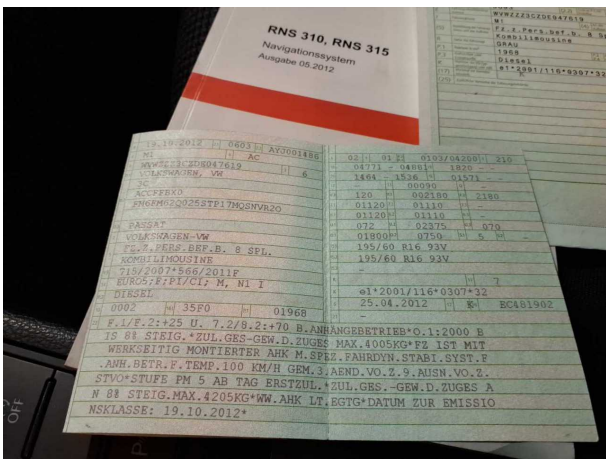 RNS 310, RNS 315
Navigationssystem
Ausgabe 05.2012
WVWZZZ3CZDE047619
M1
Fz.z.Pers.bef.b. 8 Sp
Kombilimousine
GRAU
1968
Diesel
e1*2001/116*0307*32
19.10.2012 0603 AY0001486
M1 AC
WVWZZZ3CZDE047619 6
VOLKSWAGEN, VW
3C
ACCFFBX0
FM6FM62Q025STP17MQSNVR2O
PASSAT
VOLKSWAGEN-VW
FZ.Z.PERS.BEF.B. 8 SPL.
KOMBILIMOUSINE
715/2007*566/2011F
EURO5;F;PI/CI; M, N1 I
DIESEL
0002 35F0 01968
02 01 0103/04200 210
04771 - 04881 1820 - -
1464 - 1536 01571
- 00090 -
120 002180 2180
01120 01110 -
01120 01110 -
072 02375 070
01800 0750 5
195/60 R16 93V
195/60 R16 93V
-
- 7
e1*2001/116*0307*32
25.04.2012 K EC481902
-
F.1/F.2:+25 U. 7.2/8.2:+70 B.ANHÄNGEBETRIEB*O.1:2000 B
IS 8% STEIG.*ZUL.GES-GEW.D.ZUGES MAX.4005KG*FZ IST MIT
WERKSEITIG MONTIERTER AHK M.SPEZ.FAHRDYN.STABI.SYST.F
.ANH.BETR.F.TEMP.100 KM/H GEM.3.AEND.VO.Z.9.AUSN.VO.Z.
STVO*STUFE PM 5 AB TAG ERSTZUL.*ZUL.GES.-GEW.D.ZUGES A
N 8% STEIG.MAX.4205KG*WW.AHK LT.EGTG*DATUM ZUR EMISSIO
NSKLASSE: 19.10.2012*
OFF
P